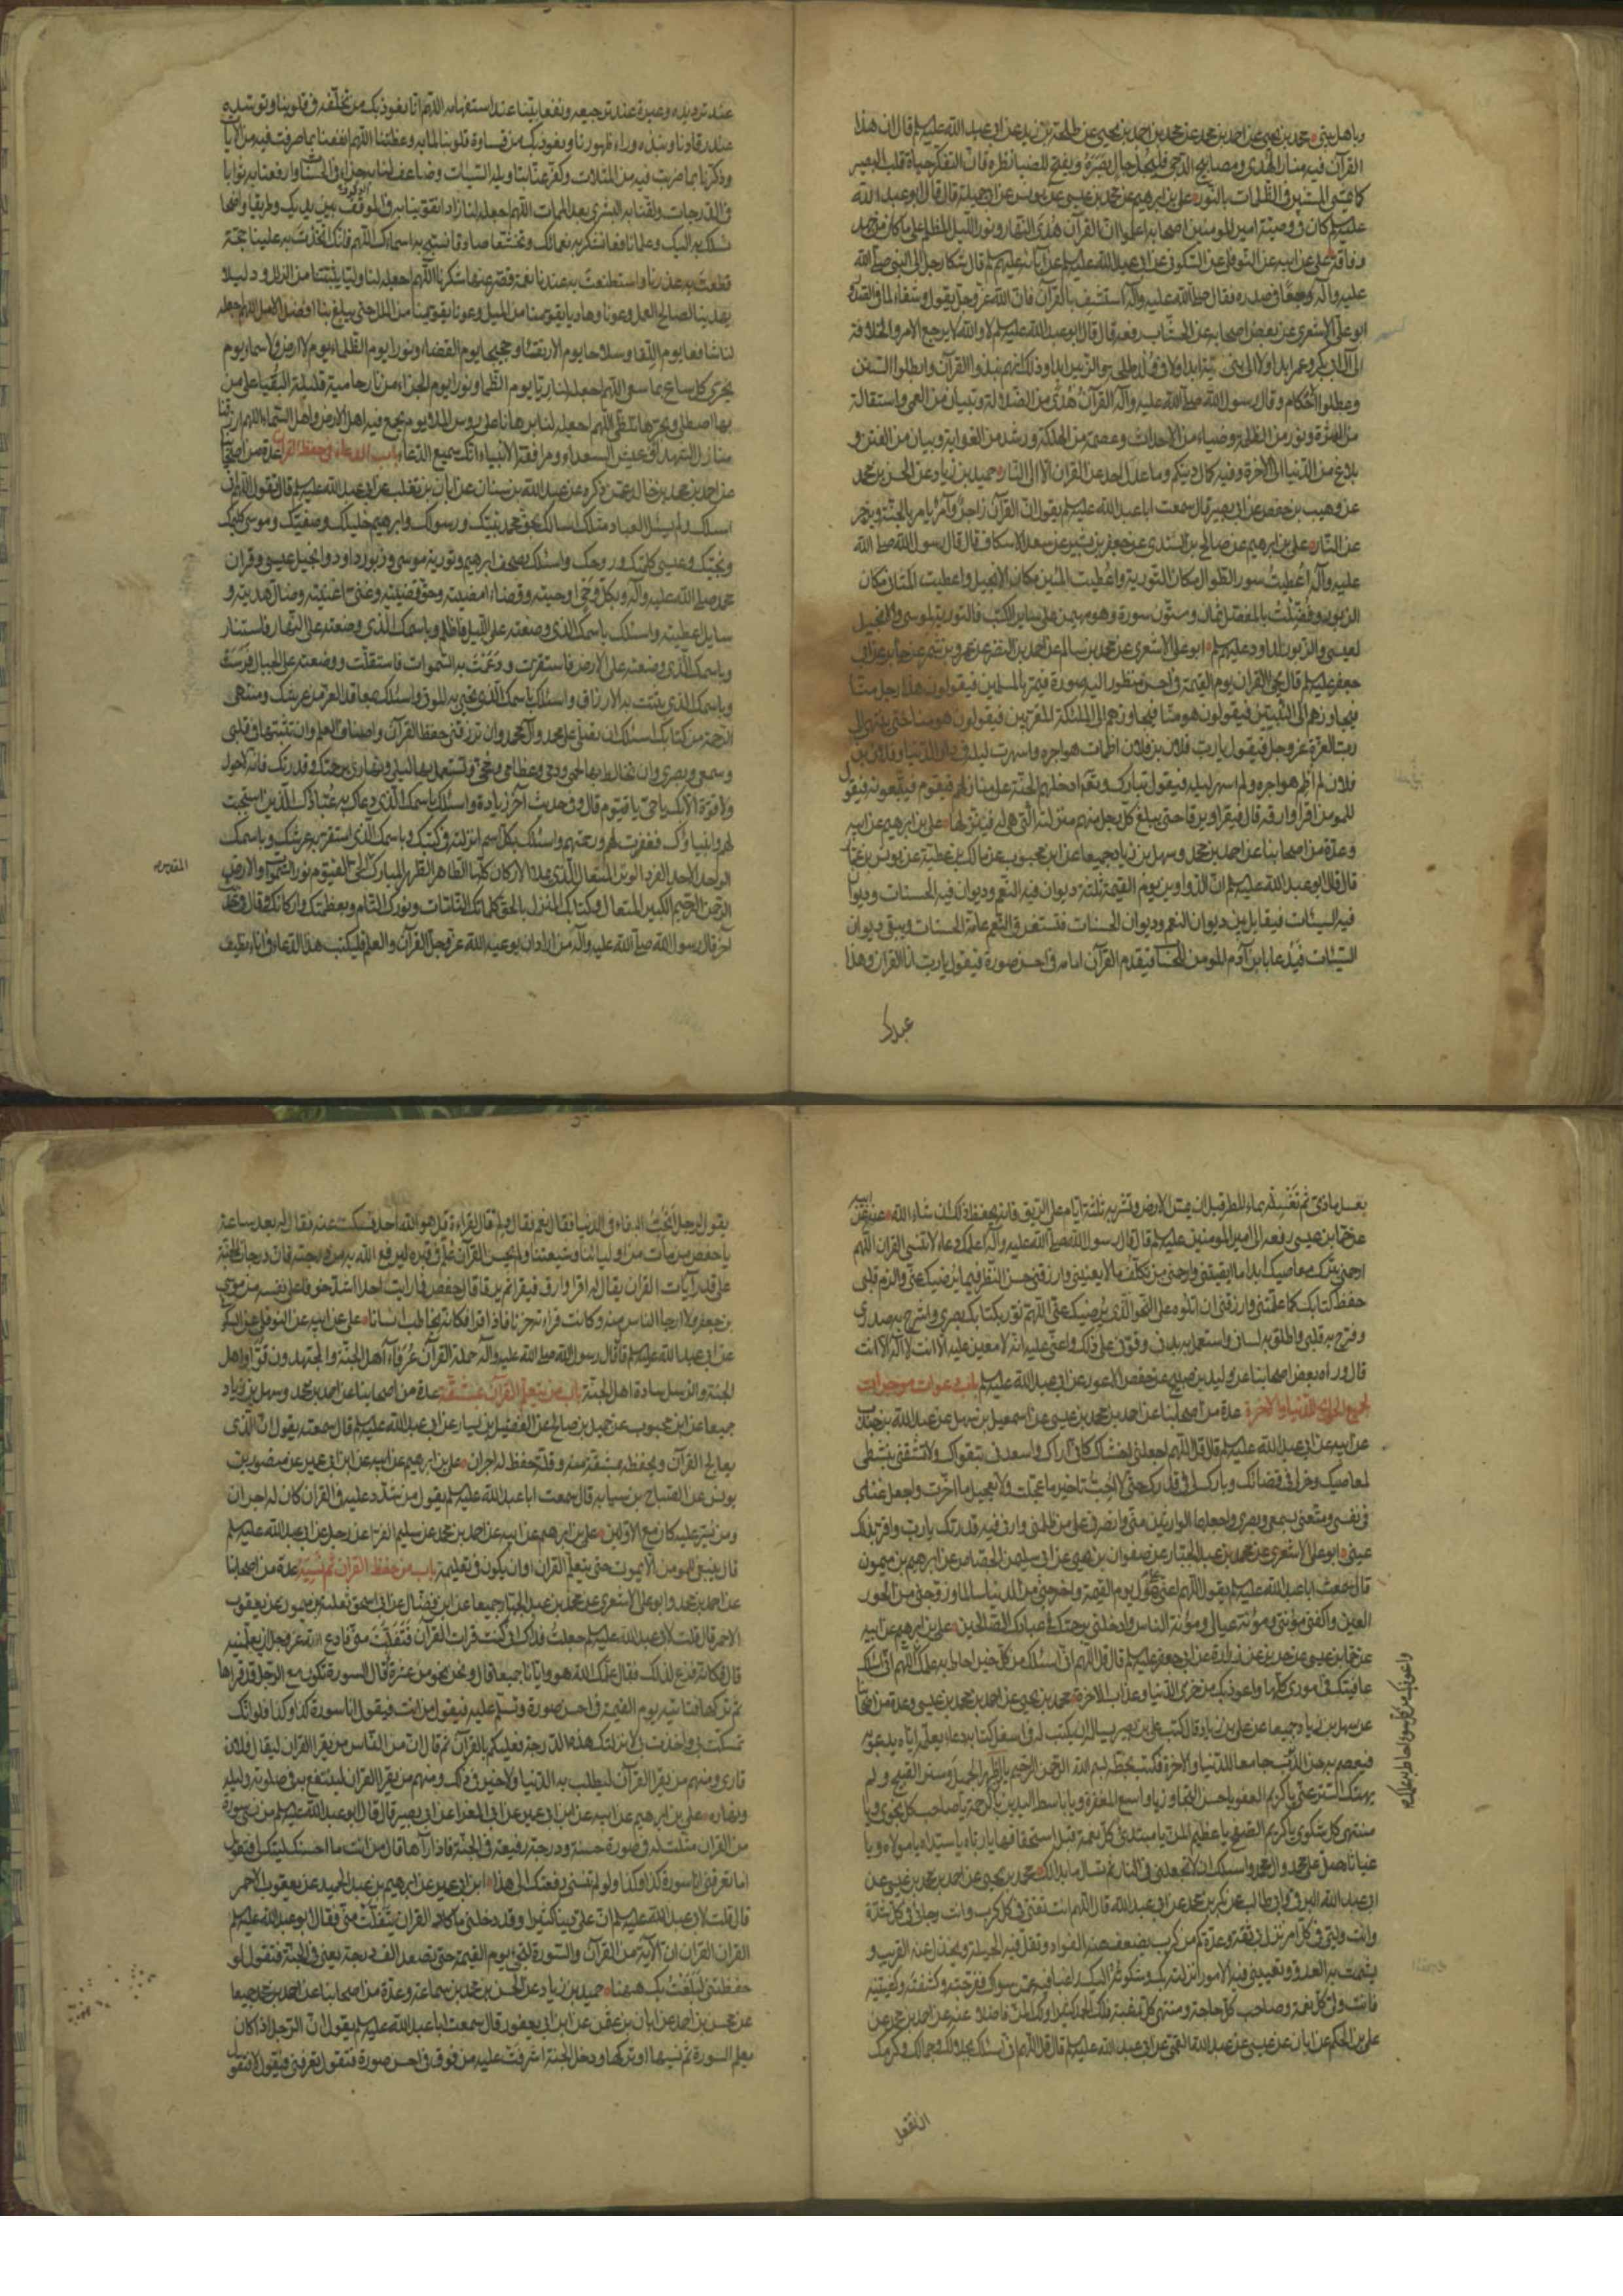 وباهل بيتي محمد بن يحيى عن احمد بن محمد عن محمد بن احمد بن يحيى عن طلحة بن زيد عن ابي عبد الله عليه السلم قال ان هذا
القرآن فيه منار الهدى ومصابيح الدجى فليجل جال بصره ويفتح للضياء نظره فان التفكر حياة قلب البصير
كما يمشي المستنير في الظلمات بالنور علي بن ابرهيم عن محمد بن عيسى عن يونس عن ابي جميلة قال قال ابو عبد الله
عليه السلم كان في وصية امير المومنين اصحابه اعلموا ان القرآن هدى النهار ونور الليل المظلم على ما كان من جهد
وفاقة علي عن ابيه عن النوفلي عن السكوني عن ابي عبد الله عليه السلم عن آبائه عليهم السلم قال شكا رجل الى النبي صلى الله
عليه وآله وجعا في صدره فقال صلى الله عليه وآله استشف بالقرآن فان الله عز وجل يقول وشفاء لما في الصدور
ابو علي الاشعري عن بعض اصحابه عن الخشاب رفعه قال قال ابو عبد الله عليه السلم لا والله لا يرجع الامر والخلافة
الى آل ابي بكر وعمر ابدا ولا الى بني امية ابدا ولا في ولد طلحة والزبير ابدا وذلك انهم نبذوا القرآن وابطلوا السنن
وعطلوا الاحكام وقال رسول الله صلى الله عليه وآله القرآن هدى من الضلالة وتبيان من العمى واستقالة
من العثرة ونور من الظلمة وضياء من الاحداث وعصمة من الهلكة ورشد من الغواية وبيان من الفتن و
بلاغ من الدنيا الى الآخرة وفيه كمال دينكم وما عدل احد عن القران الا الى النار حميد بن زياد عن الحسن بن محمد
عن وهيب بن حفص عن ابي بصير قال سمعت ابا عبد الله عليه السلم يقول ان القرآن زاجر وآمر يامر بالجنة ويزجر
عن النار علي بن ابرهيم عن صالح بن السندي عن جعفر بن بشير عن سعد الاسكاف قال قال رسول الله صلى الله
عليه وآله اعطيت سور الطوال مكان التورية واعطيت المئين مكان الانجيل واعطيت المثاني مكان
الزبور وفضلت بالمفصل ثمان وستون سورة وهو مهيمن على سائر الكتب فالتورية لموسى والانجيل
لعيسى والزبور لداود عليهم السلم ابو علي الاشعري عن محمد بن سالم عن احمد بن النضر عن عمرو بن شمر عن جابر عن ابي
جعفر عليه السلم قال يجيء القران يوم القيمة في احسن منظور اليه صورة فيمر بالمسلمين فيقولون هذا رجل منا
فيجاوزهم الى النبيين فيقولون هو منا فيجاوزهم الى الملئكة المقربين فيقولون هو منا حتى ينتهي الى
رب العزة عز وجل فيقول يا رب فلان بن فلان اظمات هواجره واسهرت ليله في دار الدنيا وفلان بن
فلان لم اظم هواجره ولم اسهر ليله فيقول تبارك وتعالى ادخلهم الجنة على منازلهم فيقوم فيتبعونه فيقول
للمومن اقرا وارقه قال فيقرا ويرقا حتى يبلغ كل رجل منهم منزلته التي هي له فينزلها علي بن ابرهيم عن ابيه
وعدة من اصحابنا عن احمد بن محمد وسهل بن زياد جميعا عن ابن محبوب عن مالك بن عطية عن يونس بن عمار
قال قال ابو عبد الله عليه السلم ان الدواوين يوم القيمة ثلثة ديوان فيه النعم وديوان فيه الحسنات وديوان
فيه السيئات فيقابل بين ديوان النعم وديوان الحسنات فتستغرق النعم عامة الحسنات ويبقى ديوان
السيئات فيدعا بابن آدم المومن للحساب فيتقدم القرآن امامه في احسن صورة فيقول يا رب انا القران وهذا
عبدك
عند ترديده وعبرة عند ترجيعه ونفعا بينا عند استفهامه اللهم انا نعوذ بك من تخلفه في قلوبنا وتوسده
عند رقادنا ونبذه وراء ظهورنا ونعوذ بك من قساوة قلوبنا لما به وعظتنا اللهم انفعنا بما صرفت فيه من الآيات
وذكرنا بما ضربت فيه من المثلات وكفر عنا بتاويله السيئات وضاعف لنا به جزاء في الحسنات وارفعنا به ثوابا
في الدرجات ولقنا به البشرى بعد الممات اللهم اجعله لنا زادا تقوينا به في الموقف بين يديك وطريقا واضحا
نسلك به اليك وعلما نافعا نشكر به نعمائك وتخشعا صادقا نسبح به اسماءك اللهم فانك اتخذت به علينا حجة
قطعت به عذرنا واصطنعت به عندنا نعمة قصر عنها شكرنا اللهم اجعله لنا وليا يثبتنا من الزلل ودليلا
يهدينا لصالح العمل وعونا وهاديا يقومنا من الميل وعونا يقوينا من الملل حتى يبلغ بنا افضل الامل اللهم اجعله
لنا شافعا يوم اللقا وسلاحا يوم الارتقاء وحجيجا يوم القضاء ونورا يوم الظلماء يوم لا ارض ولا سماء يوم
يجزى كل ساع بما سعى اللهم اجعله لنا ريا يوم الظما ونورا يوم الجزاء من نار حامية قليلة البقيا على من
بها اصطلى وبحرها تلظى اللهم اجعله لنا برهانا على رؤس الملا يوم يجمع فيه اهل الارض واهل السماء اللهم ارزقنا
منازل الشهداء وعيش السعداء ومرافقة الانبياء انك سميع الدعاء باب الدعاء في حفظ القرآن عدة من اصحابنا
عن احمد بن محمد بن خالد عمن ذكره عن عبد الله بن سنان عن ابان بن تغلب عن ابي عبد الله عليه السلم قال تقول اللهم اني
اسئلك ولم يسئل العباد مثلك اسالك بحق محمد نبيك ورسولك وابرهيم خليلك وصفيك وموسى كليمك
ونجيك وعيسى كلمتك وروحك واسئلك بصحف ابرهيم وتورية موسى وزبور داود وانجيل عيسى وقران
محمد صلى الله عليه وآله وبكل وحي اوحيته وقضاء امضيته وحق قضيته وغني اغنيته وضال هديته و
سايل اعطيته واسئلك باسمك الذي وضعته على الليل فاظلم وباسمك الذي وضعته على النهار فاستنار
وباسمك الذي وضعته على الارض فاستقرت ودعمت به السموات فاستقلت ووضعته على الجبال فرست
وباسمك الذي بثثت به الارزاق واسئلك باسمك الذي تحيي به الموتى واسئلك بمعاقد العز من عرشك ومنتهى
الرحمة من كتابك اسئلك ان تصلي على محمد وآل محمد وان ترزقني حفظ القرآن واصناف العلم وان تثبتها في قلبي
وسمعي وبصري وان تخالط بها لحمي ودمي وعظامي ومخي وتستعمل بها ليلي ونهاري برحمتك وقدرتك فانه لا حول
ولا قوة الا بك يا حي يا قيوم قال وفي حديث آخر زيادة واسئلك باسمك الذي دعاك به عبادك الذين استجبت
لهم وانبياؤك فغفرت لهم ورحمتهم واسئلك بكل اسم انزلته في كتبك وباسمك الذي استقر به عرشك وباسمك
الواحد الاحد الفرد الوتر المتعال الذي يملا الاركان كلها الطاهر الطهر المبارك الحي القيوم نور السموات والارض
الرحمن الرحيم الكبير المتعال وكتابك المنزل بالحق وكلماتك التامات ونورك التام وبعظمتك واركانك وقال في حديث
آخر قال رسول الله صلى الله عليه وآله من اراد ان يوعيه الله عز وجل القرآن والعلم فليكتب هذا الدعاء في اناء نظيف
بعسل ماذي ثم تغسله بماء المطر قبل ان يمس الارض وتشربه ثلثة ايام على الريق فانه يحفظ ذلك ان شاء الله عنه عن ابيه
عن حماد بن عيسى رفعه الى امير المومنين عليه السلم قال قال رسول الله صلى الله عليه وآله اعلمك دعاء لا تنسى القران اللهم
ارحمني بترك معاصيك ابدا ما ابقيتني وارحمني من تكلف ما لا يعنيني وارزقني حسن النظر فيما يرضيك عني والزم قلبي
حفظ كتابك كما علمتني وارزقني ان اتلوه على النحو الذي يرضيك عني اللهم نور بكتابك بصري واشرح به صدري
وفرح به قلبي واطلق به لساني واستعمل به بدني وقوني على ذلك واعني عليه انه لا معين عليه الا انت لا اله الا انت
قال ورواه بعض اصحابنا عن وليد بن صبيح عن حفص الاعور عن ابي عبد الله عليه السلم باب دعوات موجزات
لجميع الحوائج للدنيا والاخرة عدة من اصحابنا عن احمد بن محمد بن عيسى عن اسمعيل بن سهل عن عبد الله بن جندب
عن ابيه عن ابي عبد الله عليه السلم قال قل اللهم اجعلني اخشاك كاني اراك واسعدني بتقواك ولا تشقني بنشطي
لمعاصيك وخر لي في قضائك وبارك لي في قدرك حتى لا احب تاخير ما عجلت ولا تعجيل ما اخرت واجعل غناي
في نفسي ومتعني بسمعي وبصري واجعلهما الوارثين مني وانصرني على من ظلمني وارني فيه قدرتك يا رب واقر بذلك
عيني ابو علي الاشعري عن محمد بن عبد الجبار عن صفوان بن يحيى عن ابي سليمن الجصاص عن ابرهيم بن ميمون
قال سمعت ابا عبد الله عليه السلم يقول اللهم اعني على هول يوم القيمة واخرجني من الدنيا سالما وزوجني من الحور
العين واكفني مؤنتي ومؤنة عيالي ومؤنة الناس وادخلني برحمتك في عبادك الصالحين علي بن ابرهيم عن ابيه
عن حماد بن عيسى عن حريز عن زرارة عن ابي جعفر عليه السلم قال قل اللهم اني اسئلك من كل خير احاط به علمك اللهم اني اسئلك
واعوذ بك من كل سوء احاط به علمك
عافيتك في اموري كلها واعوذ بك من خزي الدنيا وعذاب الاخرة محمد بن يحيى عن احمد بن محمد بن عيسى وعدة من اصحابنا
عن سهل بن زياد جميعا عن علي بن زياد قال كتب علي بن بصير يساله ان يكتب له في اسفل كتابه دعاء يعلمه اياه يدعو به
فيعصم به من الذنوب جامعا للدنيا والاخرة فكتب بخطه بسم الله الرحمن الرحيم يا من اظهر الجميل وستر القبيح ولم
يهتك الستر عني يا كريم العفو يا حسن التجاوز يا واسع المغفرة ويا باسط اليدين بالرحمة يا صاحب كل نجوى ويا
منتهى كل شكوى يا كريم الصفح يا عظيم المن يا مبتدئ كل نعمة قبل استحقاقها يا رباه يا سيداه يا مولاه ويا
غياثاه صل على محمد وال محمد واسئلك ان لا تجعلني في النار ثم تسال ما بدا لك محمد بن يحيى عن احمد بن محمد بن عيسى عن
ابي عبد الله البرقي وابي طالب عن بكر بن محمد عن ابي عبد الله قال اللهم انت ثقتي في كل كرب وانت رجائي في كل شدة
وانت وليي في كل امر نزل بي ثقة وعدة كم من كرب يضعف عنه الفواد وتقل فيه الحيلة ويخذل عنه القريب و
يشمت به العدو وتعييني فيه الامور انزلته بك وشكوته اليك راغبا فيه عمن سواك ففرجته وكشفته وكفيتنيه
فانت ولي كل نعمة وصاحب كل حاجة ومنتهى كل رغبة فلك الحمد كثيرا ولك المن فاضلا عنه عن احمد بن محمد عن
علي بن الحكم عن ابان عن عيسى بن عبد الله القمي عن ابي عبد الله عليه السلم قال قل اللهم اني اسئلك بجلالك وجمالك وكرمك
ان تفعل
يقول لرجل اتحب البقاء في الدنيا فقال نعم فقال ولم قال لقراءة قل هو الله احد فسكت عنه فقال له بعد ساعة
يا حفص من مات من اوليائنا وشيعتنا ولم يحسن القرآن علم في قبره ليرفع الله به من درجته فان درجات الجنة
على قدر آيات القران يقال له اقرا وارق فيقرا ثم يرقا قال حفص فما رايت احدا اشد خوفا على نفسه من موسى
بن جعفر ولا ارجا الناس منه وكانت قراءته حزنا فاذا قرا فكانه يخاطب انسانا علي عن ابيه عن النوفلي عن السكوني
عن ابي عبد الله عليه السلم قال قال رسول الله صلى الله عليه وآله حملة القرآن عرفاء اهل الجنة والمجتهدون قواد اهل
الجنة والرسل سادة اهل الجنة باب من يتعلم القرآن بمشقة عدة من اصحابنا عن احمد بن محمد وسهل بن زياد
جميعا عن ابن محبوب عن جميل بن صالح عن الفضيل بن يسار عن ابي عبد الله عليه السلم قال سمعته يقول ان الذي
يعالج القرآن ويحفظه بمشقة منه وقلة حفظ له اجران علي بن ابرهيم عن ابيه عن ابن ابي عمير عن منصور بن
يونس عن الصباح بن سيابة قال سمعت ابا عبد الله عليه السلم يقول من شدد عليه في القران كان له اجران
ومن يسر عليه كان مع الاولين علي بن ابرهيم عن ابيه عن احمد بن محمد عن سليم الفراء عن رجل عن ابي عبد الله عليه السلم
قال ينبغي للمومن ان لا يموت حتى يتعلم القران او ان يكون في تعليمه باب من حفظ القران ثم نسيه عدة من اصحابنا
عن احمد بن محمد وابو علي الاشعري عن محمد بن عبد الجبار جميعا عن ابن فضال عن ابي اسحق ثعلبة بن ميمون عن يعقوب
الاحمر قال قلت لابي عبد الله عليه السلم جعلت فداك اني كنت قرات القرآن فتفلت مني فادع الله عز وجل ان يعلمنيه
قال فكانه فزع لذلك فقال علمك الله هو وايانا جميعا قال ونحن نحو من عشرة ثم قال السورة تكون مع الرجل قد قراها
ثم تركها فتاتيه يوم القيمة في احسن صورة وتسلم عليه فيقول من انت فيقول انا سورة كذا وكذا فلو انك
تمسكت بي واخذت بي لانزلتك هذه الدرجة فعليكم بالقرآن ثم قال ان من الناس من يقرا القران ليقال فلان
قارئ ومنهم من يقرا القرآن ليطلب به الدنيا ولا خير في ذلك ومنهم من يقرا القران لينتفع به في صلوته وليله
ونهاره علي بن ابرهيم عن ابيه عن ابن ابي عمير عن ابي المغرا عن ابي بصير قال قال ابو عبد الله عليه السلم من نسي سورة
من القران مثلت له في صورة حسنة ودرجة رفيعة في الجنة فاذا رآها قال من انت ما احسنك ليتك لي فيقول
اما تعرفني انا سورة كذا وكذا ولو لم تنسني رفعتك الى هذا ابن ابي عمير عن ابرهيم بن عبد الحميد عن يعقوب الاحمر
قال قلت لابي عبد الله عليه السلم ان علي دينا كثيرا وقد دخلني ما كان القران يتفلت مني فقال ابو عبد الله عليه السلم
القران القران ان الآية من القرآن والسورة لتجيء يوم القيمة حتى تصعد الف درجة يعني في الجنة فتقول لو
حفظتني لبلغت بك ههنا حميد بن زياد عن الحسن بن محمد بن سماعة وعدة من اصحابنا عن احمد بن محمد جميعا
عن محسن بن احمد عن ابان بن عثمن عن ابن ابي يعفور قال سمعت ابا عبد الله عليه السلم يقول ان الرجل اذا كان
يعلم السورة ثم نسيها او تركها ودخل الجنة اشرفت عليه من فوق في احسن صورة فتقول تعرفني فيقول لا فتقول